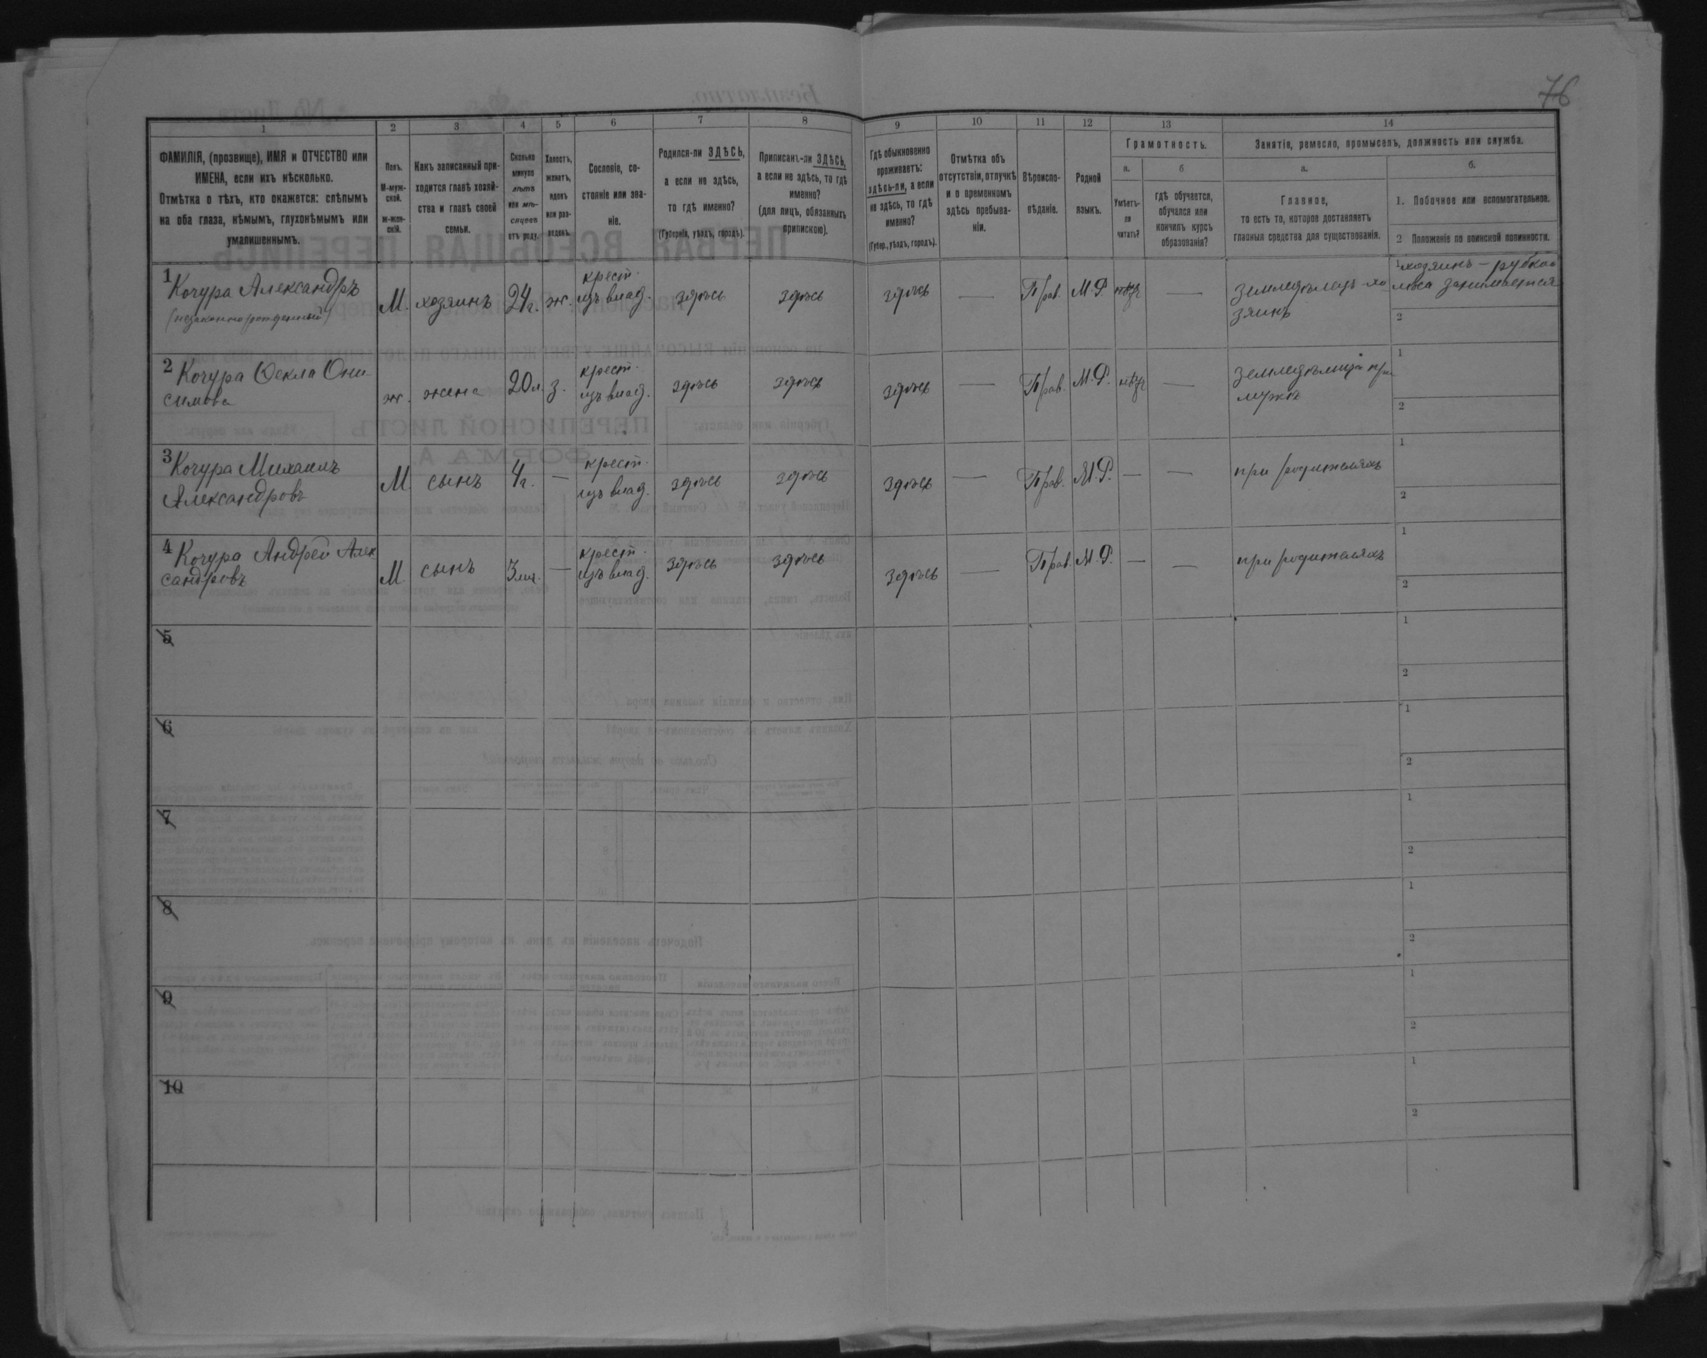 76
1 2 3 4 5 6 7 8 9 10 11 12 13 14
ФАМИЛІЯ, (прозвище), ИМЯ и ОТЧЕСТВО или
ИМЕНА, если ихъ нѣсколько.
Отмѣтка о тѣхъ, кто окажется: слѣпымъ
на оба глаза, нѣмымъ, глухонѣмымъ или
умалишеннымъ.
Полъ.
М-муж-
ской.
Ж-жен-
скій.
Какъ записанный при-
ходится главѣ хозяй-
ства и главѣ своей
семьи.
Сколько
минуло
лѣтъ
или мѣ-
сяцевъ
отъ роду.
Холостъ,
женатъ,
вдовъ
или раз-
веденъ.
Сословіе, со-
стояніе или зва-
ніе.
Родился-ли ЗДѢСЬ,
а если не здѣсь,
то гдѣ именно?
(Губернія, уѣздъ, городъ).
Приписанъ-ли ЗДѢСЬ,
а если не здѣсь, то гдѣ
именно?
(для лицъ, обязанныхъ
припискою).
Гдѣ обыкновенно
проживаетъ:
здѣсь-ли, а если
не здѣсь, то гдѣ
именно?
(Губер., уѣздъ, городъ).
Отмѣтка объ
отсутствіи, отлучкѣ
и о временномъ
здѣсь пребыва-
ніи.
Вѣроиспо-
вѣданіе.
Родной
языкъ.
Грамотность.
а. б
Умѣетъ-
ли
читать?
гдѣ обучается,
обучался или
кончилъ курсъ
образованія?
Занятіе, ремесло, промыселъ, должность или служба.
а. б.
Главное,
то есть то, которое доставляетъ
главныя средства для существованія.
1. Побочное или вспомогательное.
2 Положеніе по воинской повинности.
1 Кочура Александръ
(незаконнорожденный)
М. хозяинъ 24 г. ж. крест.
изъ влад. здѣсь здѣсь здѣсь — Прав. М.Р. нѣтъ — Земледѣлецъ хо
зяинъ
1 хозяинъ – рубкой
лѣса занимается
2
2 Кочура Фекла Они
симова
ж. жена 20 л. з. крест.
изъ влад. здѣсь здѣсь здѣсь — Прав. М.Р. нѣтъ — Земледѣлица при
мужѣ
1
2
3 Кочура Михаилъ
Александровъ
М сынъ 4 г. — крест.
изъ влад. здѣсь здѣсь здѣсь — Прав. М.Р. — — при родителяхъ
1
2
4 Кочура Андрей Алек
сандровъ
М сынъ — крест.
изъ влад. здѣсь здѣсь здѣсь — Прав. М.Р. — — при родителяхъ
1
2
5
1
2
6
1
2
7
1
2
8
1
2
9
1
2
10
1
2